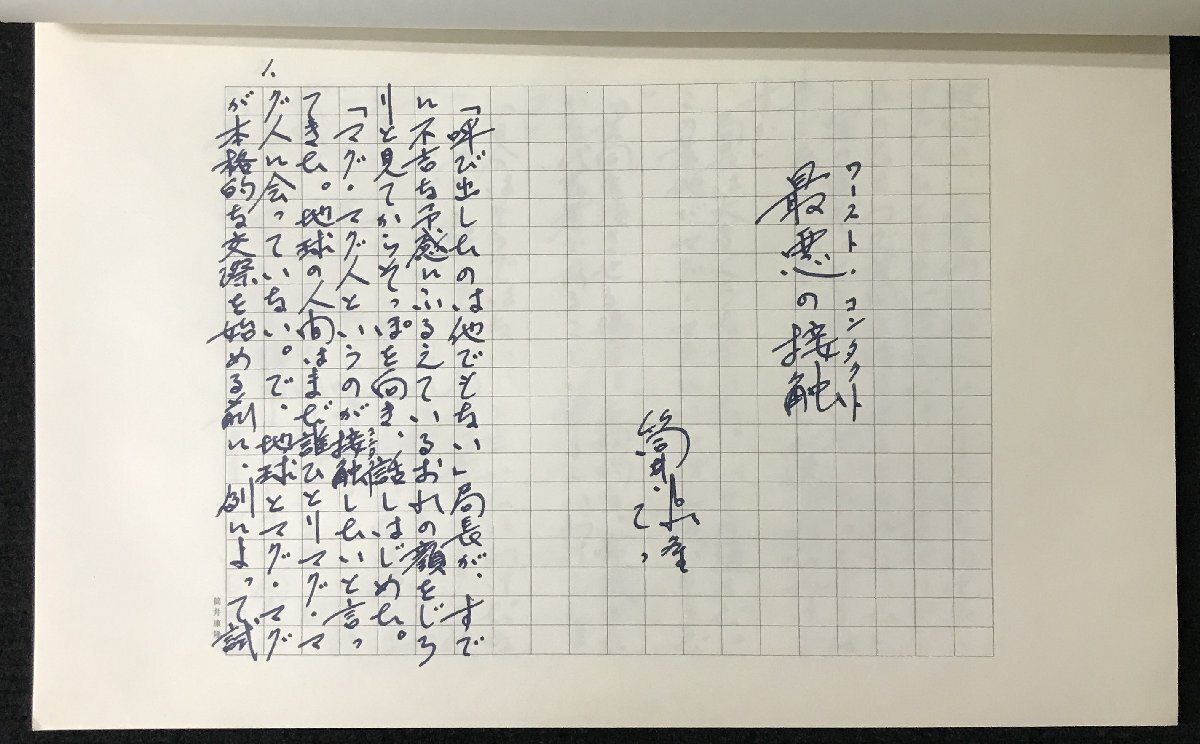 ワースト・コンタクト
最悪の接触
筒井康隆
「呼び出したのは他でもない」局長が、すで
に不吉な予感にふるえているおれの顔をじろ
りと見てからそっぽを向き、話しはじめた。
「マグ・マグ人というのが接触したいと言っ
てきた。地球の人間はまだ誰ひとりマグ・マ
グ人に会っていない。で、地球とマグ・マグ
が本格的な交際を始める前に、例によって試
1.
筒井康隆